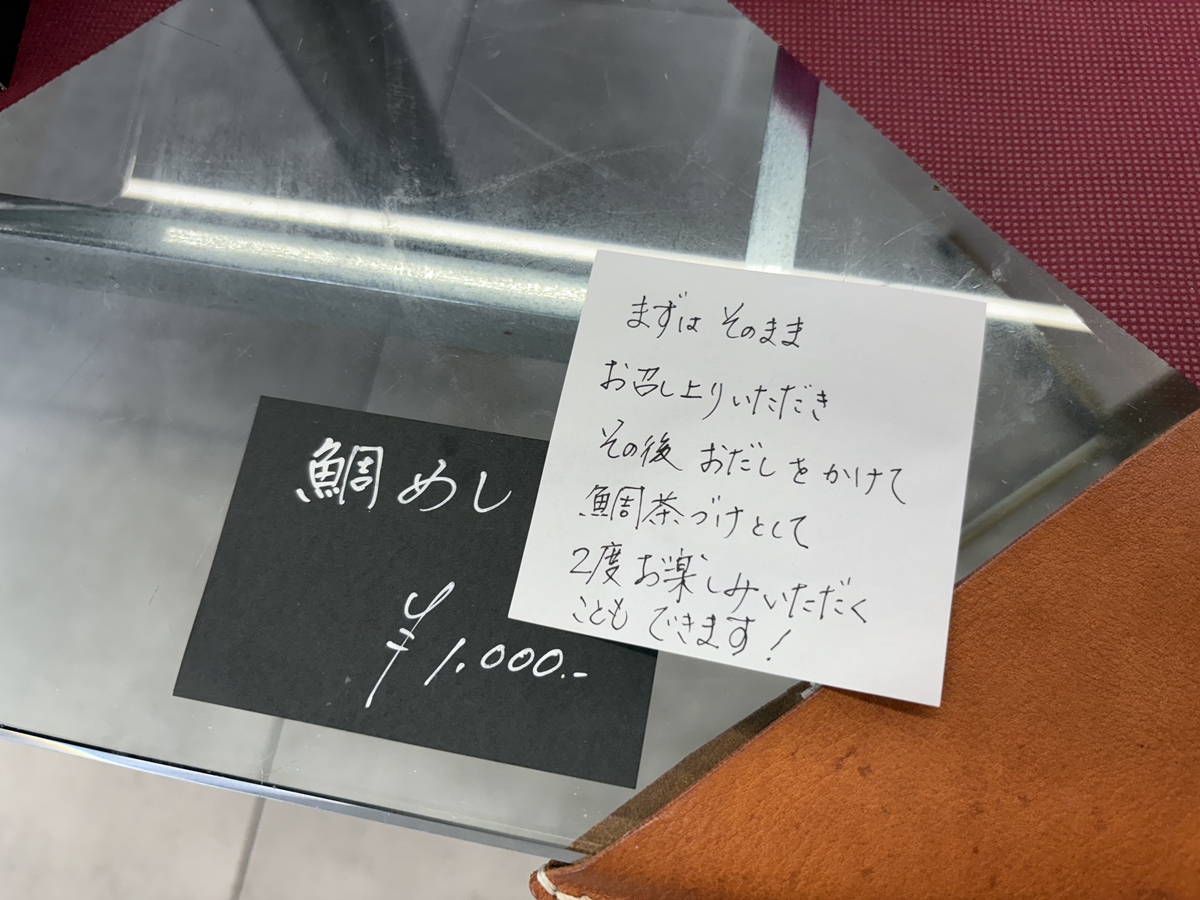 鯛めし
¥1,000.-
まずは そのまま
お召し上りいただき
その後 おだしを かけて
鯛茶づけとして
2度 お楽しみいただく
ことも できます!